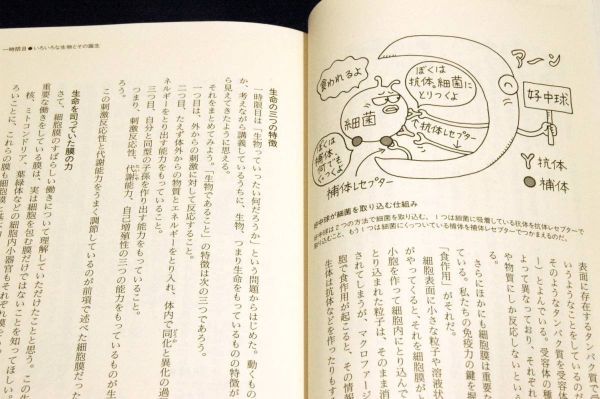 アーン
好中球
食われるよ
ぼくは
抗体、細菌に
とりつくよ
細菌
抗体レセプター
ぼくは
補体、
何でも
くっつくよ
補体レセプター
抗体
補体
好中球が細菌を取り込む仕組み
好中球は2つの方法で細菌を取り込む。1つは細菌に吸着している抗体を抗体レセプターで
取り込むこと、もう1つは細菌にくっついている補体を補体レセプターでつかまえるのだ。
表面に存在するタンパク
いうようなことをしているのだ
そのようなタンパク質を受容
ー）とよんでいる。受容体の種
よって異なっており、それぞれ
や物質にしか反応しないという
さらにほかにも細胞膜は重要な
ている。私たちの免疫力の鍵を握
「食作用」がそれだ。
細胞表面に小さな粒子や溶液状
がやってくると、それを細胞膜が
小胞を作って細胞内にとり込んで
とり込まれた粒子は、そのまま消
されてしまうが、マクロファージ
胞で食作用が起こると、その情報
生体は抗体などを作ったりもす
一時限目●いろいろな生物とその誕生
生命の三つの特徴
一時限目は「生物っていったい何だろうか」という問題からはじめた。動くもの
か、考えながら講義しているうちに、生物、つまり生命をもっているものの特徴が
ら見えてきたように思える。
それをまとめてみよう。「生物であること」の特徴は次の三つであろう。
一つ目は、外からの刺激に対して反応すること。
二つ目、たえず体外からの物質とエネルギーをとり入れ、体内で同化と異化の過
ネルギーを作り出す能力をもっていること。
三つ目、自分と同型の子孫を作り出す能力をもっていること。
つまり、刺激反応性、代謝能力、自己増殖性の三つの能力をもっているものが生
ろう。
この刺激反応性と代謝能力をうまく調節しているのが前項で述べた細胞膜だった
生命を司っていた膜の力
さて、細胞膜のすばらしい働きについて理解していただけたことと思う。この生
重要な働きをしている膜は、実は細胞を包む膜だけではないことを知ってほしい。
核、ミトコンドリア、葉緑体などの細胞内小器官もそれぞれ膜
ろいことに、これらの膜も細胞膜と